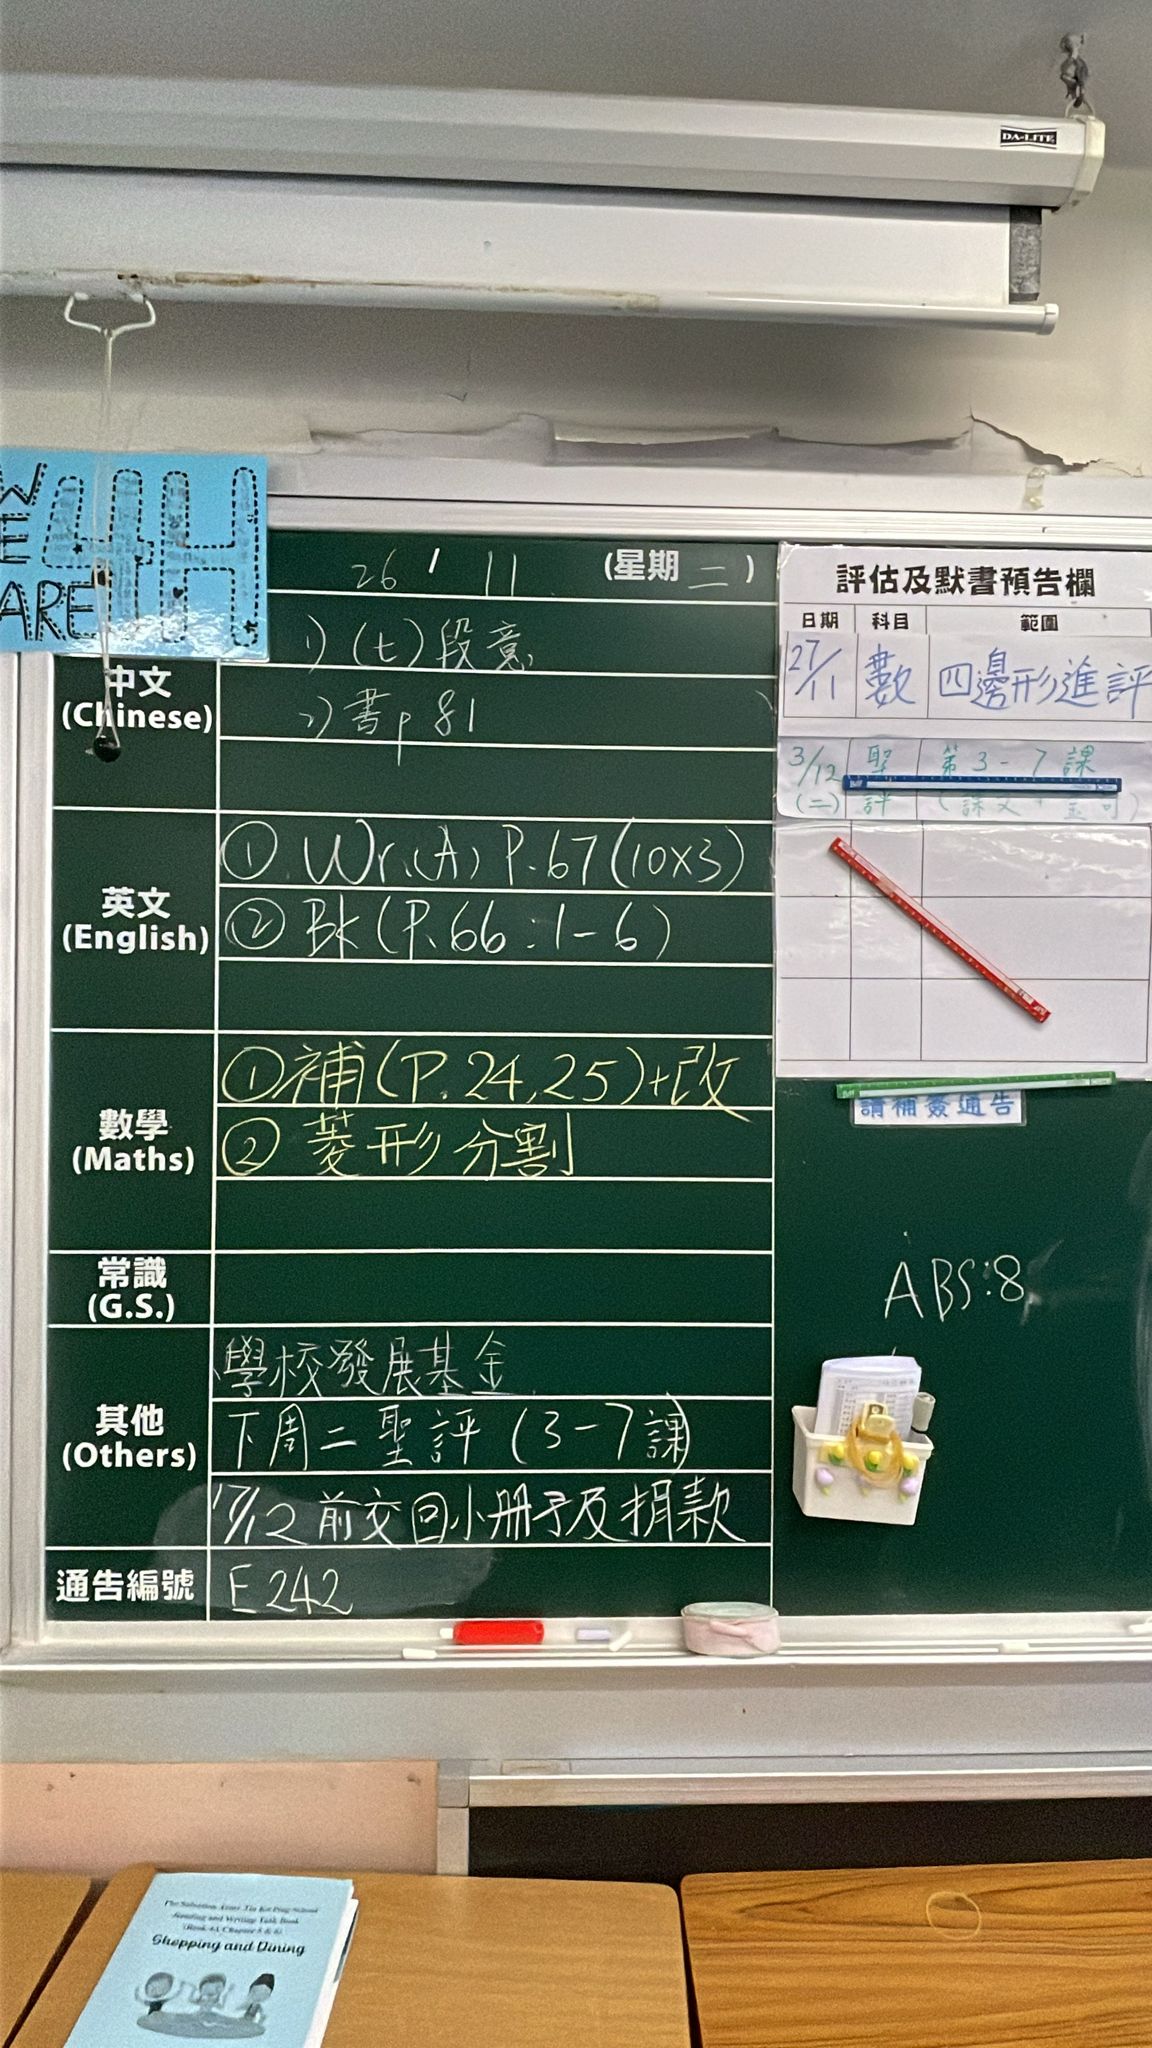 DA-LITE
WE
ARE
4H
26 / 11 (星期 二 )
中文
(Chinese)
1) (七) 段意
2) 書p 81
英文
(English)
① Wr.(A) P.67 (10x3)
② Bk (P.66 : 1-6)
數學
(Maths)
① 補 (P.24,25)+改
② 菱形分割
常識
(G.S.)
其他
(Others)
學校發展基金
下周二聖評 (3-7課)
17/12 前交回小冊子及捐款
通告編號
E242
評估及默書預告欄
日期 科目 範圍
27/11 數 四邊形進評
3/12 聖 第3-7課
(二) 評 (課文+金句)
請補簽通告
ABS:8
The Salvation Army Tin Ka Ping School
Reading and Writing Task Book
(Book 4A Chapter 5 & 6)
Shopping and Dining